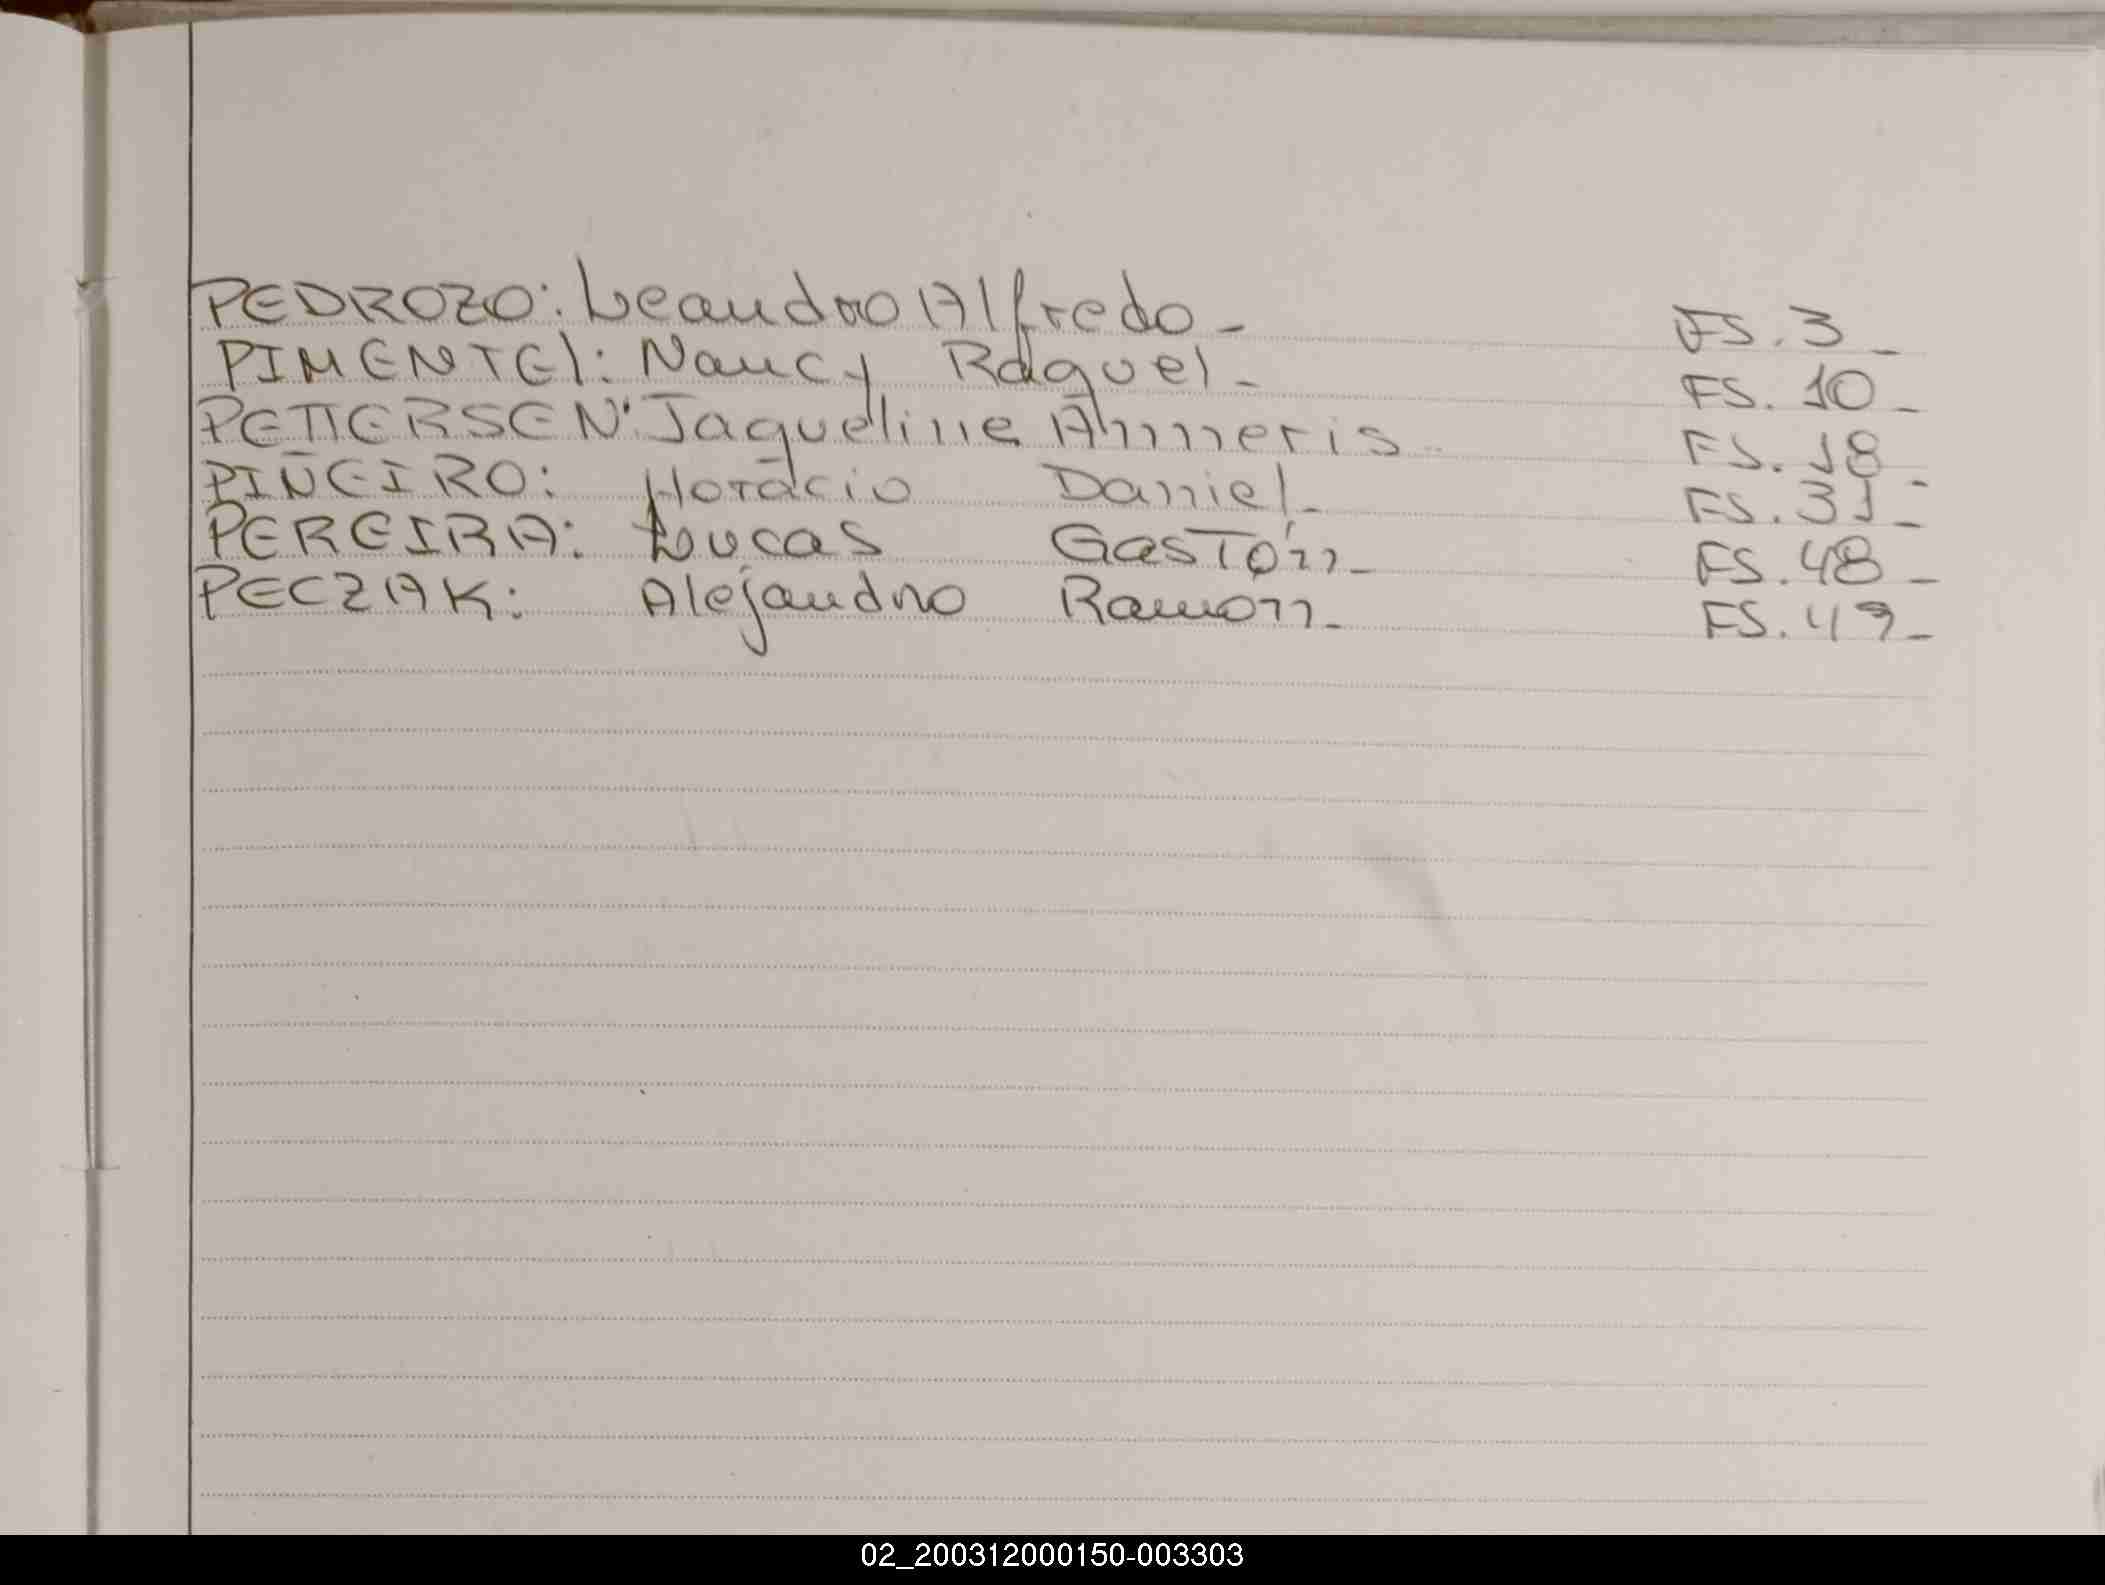 PEDROZO: Leandro Alfredo - FS. 3 -
PIMENTEl: Nancy Raquel - FS. 10 -
PETTERSEN: Jaqueline Anneris - FS. 18 -
PIÑEIRO: Horacio Daniel - FS. 31 -
PEREIRA: Lucas Gastón - FS. 48 -
PECZAK: Alejandro Ramon - FS. 49 -
02_200312000150-003303